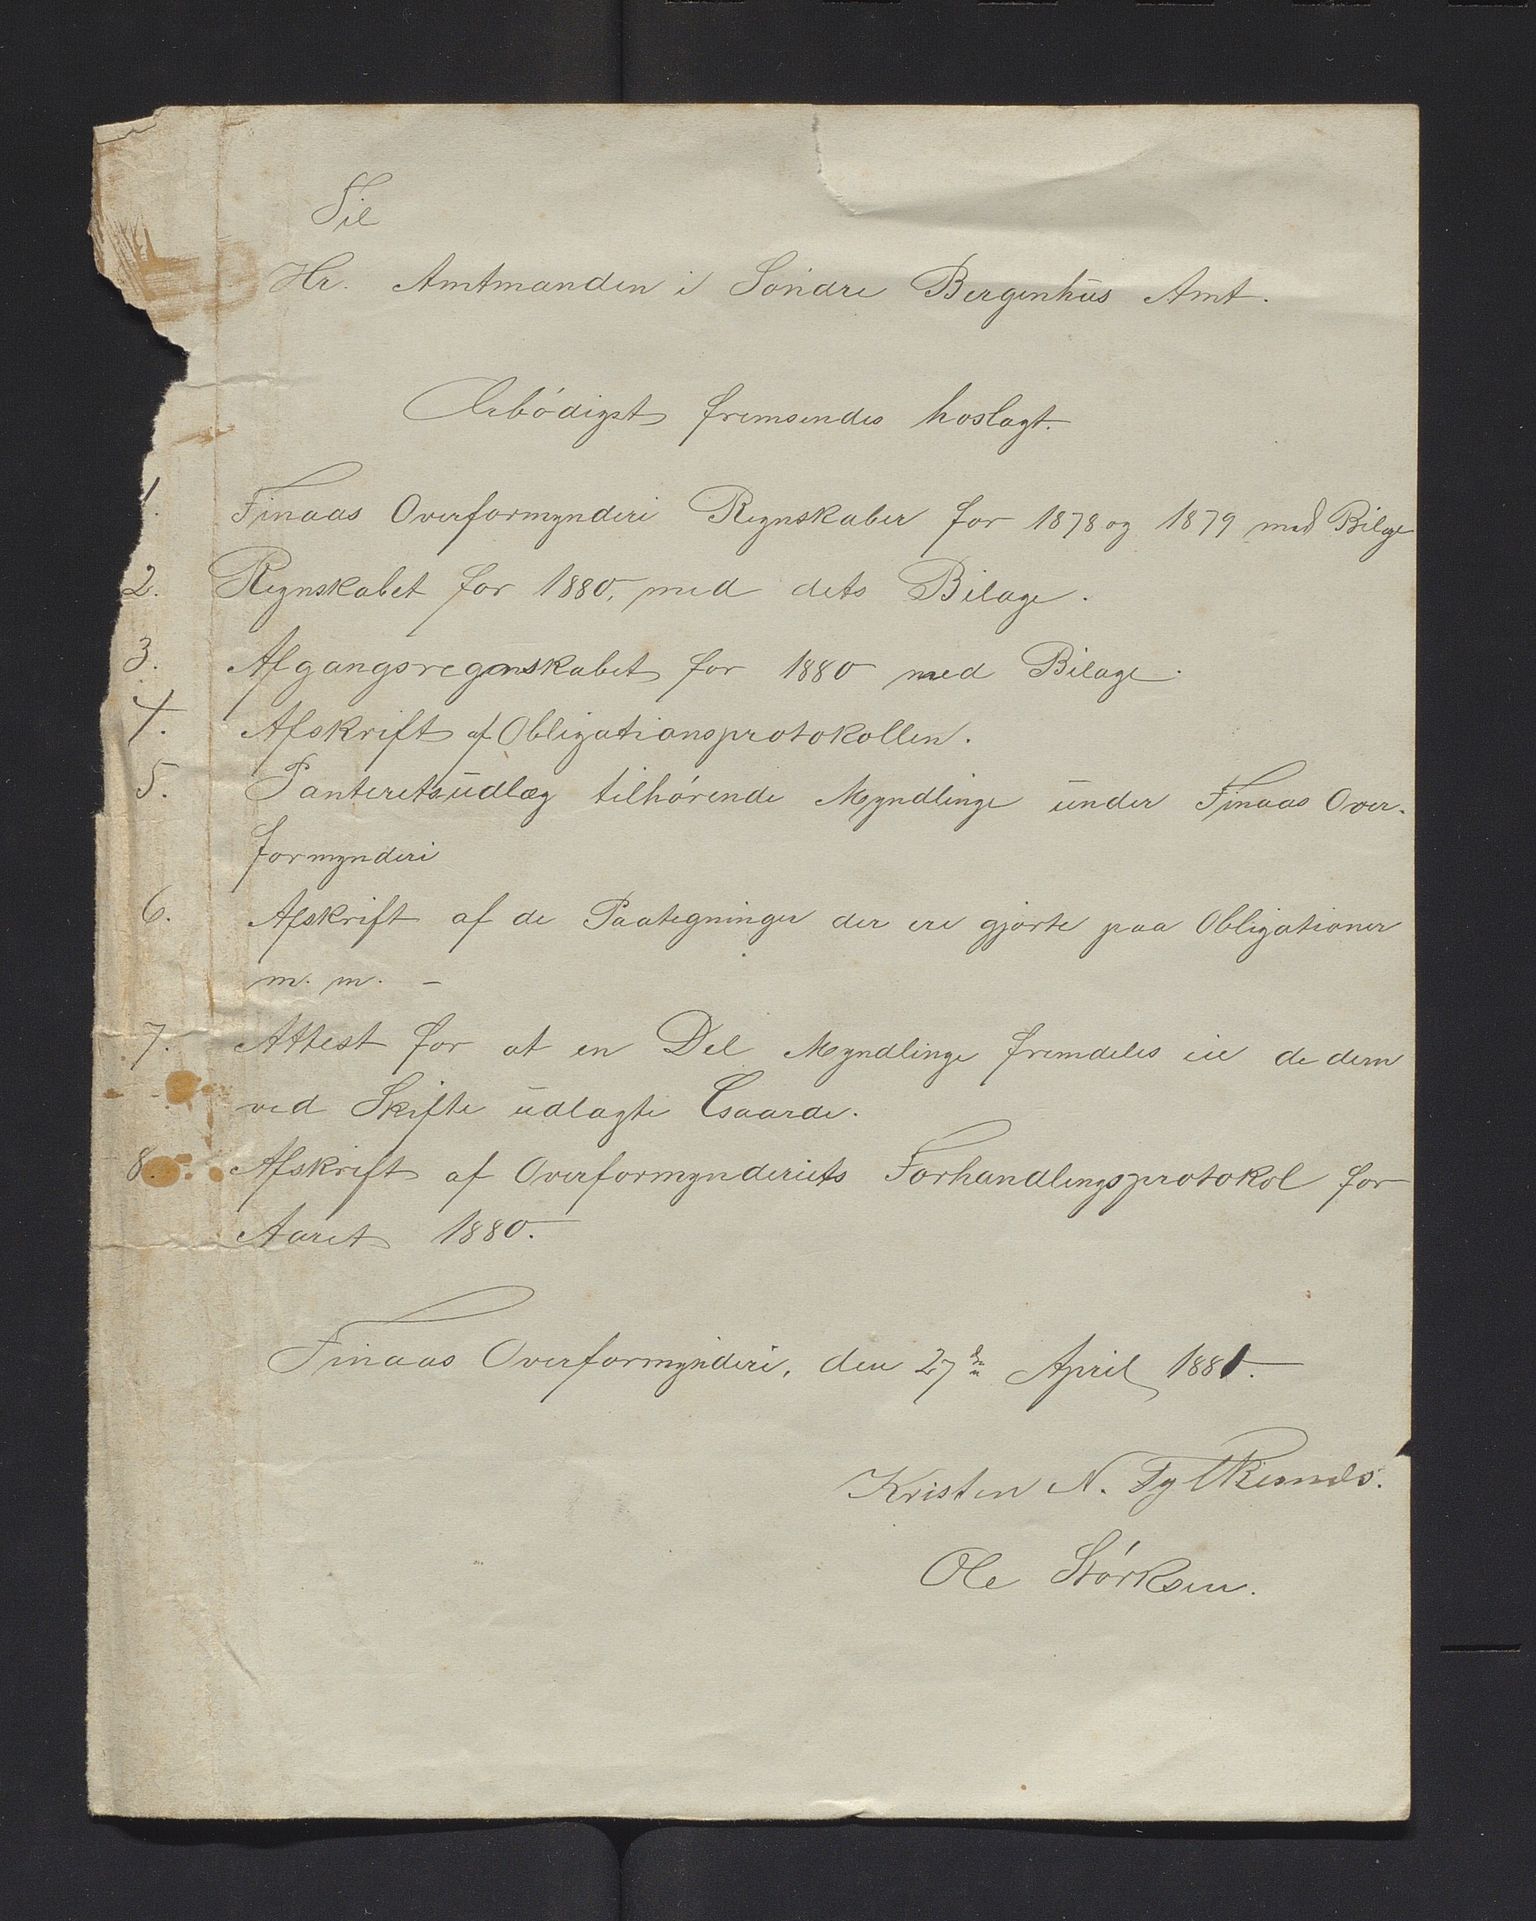 Til
Hr. Amtmanden i Søndre Bergenhus Amt.
Ærbødigst fremsendes hoslagt.
1. Finaas Overformynderi Regnskaber for 1878 og 1879 med Bilage
2. Regnskabet for 1880, med dets Bilage.
3. Afgangsregnskabet for 1880 med Bilage.
4. Afskrift af Obligationsprotokollen.
5. Panteretsudlæg tilhørende Myndlinge under Finaas Over-
formynderi
6. Afskrift af de Paategninger der ere gjorte paa Obligationer
m. m. –
7. Attest for at en Del Myndlinge fremdeles eie de dem
ved Skifte udlagte Gaarde.
8. Afskrift af Overformynderiets Forhandlingsprotokol for
Aaret 1880.
Finaas Overformynderi, den 27de April 1881.
Kristen N. Fylkesnes.
Ole Størksen.